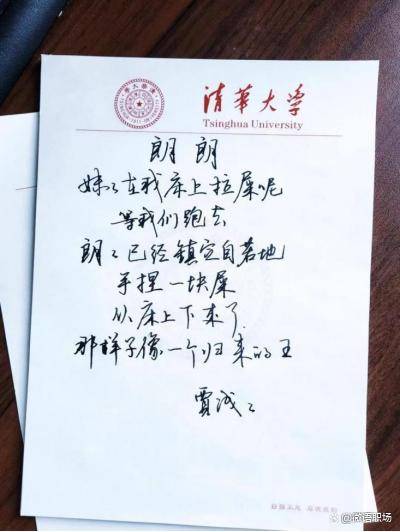 清華大学
Tsinghua University
朗朗
妹々在我床上拉屎呢
等我们跑去
朗々已经镇定自若地
手捏一块屎
从床上下来了
那样子像一个归来的王
贾浅々
自强不息 厚德载物
@微语职场